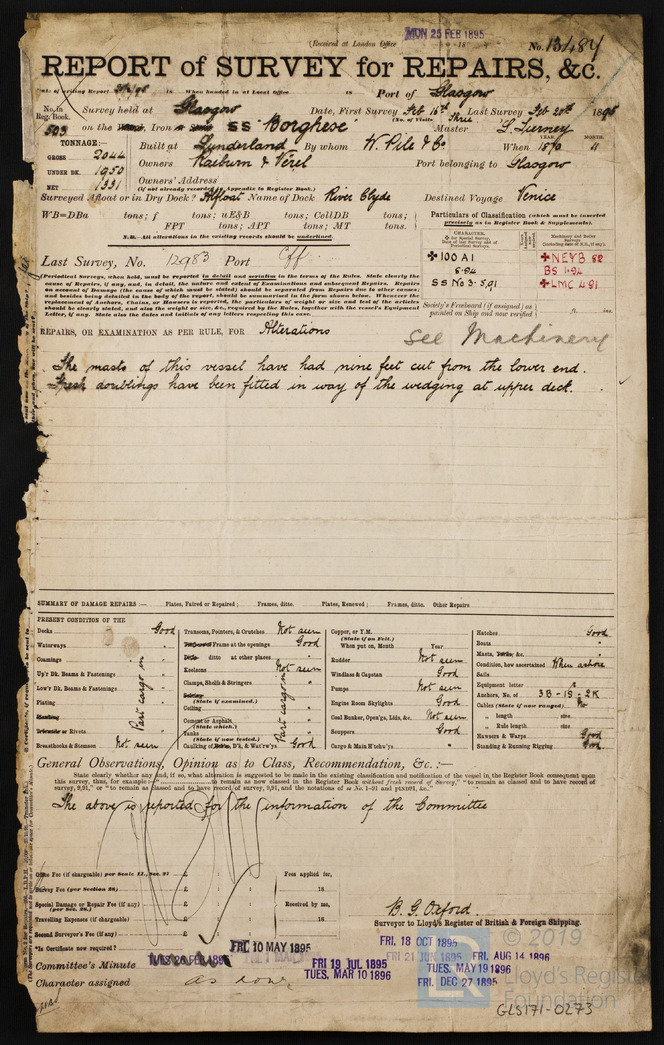 (Received at London Office MON 25 FEB 1895
No. 13484
REPORT of SURVEY for REPAIRS, &c.
When handed in at Local Office 18 Port of Glasgow
No. in Reg. Book. Survey held at Glasgow Date, First Survey Feb 16th Last Survey Feb 20th 1895
(No. of Visits Three
503 on the Iron SS "Borghese" Master T. Tierney
TONNAGE:— Built at Sunderland By whom W. Pile & Co When 1870 YEAR. MONTH. 11
GROSS 2044
UNDER DK. 1950 Owners Raeburn & Verel Port belonging to Glasgow
NET 1331 Owners' Address
(if not already recorded in Appendix to Register Book.)
Surveyed Afloat or in Dry Dock? Afloat Name of Dock River Clyde Destined Voyage Venice
WB=DBa tons; f tons; uE&B tons; CellDB tons;
FPT tons; APT tons; MT tons.
N.B.—All alterations in the existing records should be underlined.
Particulars of Classification (which must be inserted precisely as in Register Book & Supplements).
CHARACTER.
100 A1
SS No 3. 5.91
NE&B 82
BS 1.94
LMC 4.91
Last Survey, No. 12983 Port Cff
(Periodical Surveys, when held, must be reported in detail and seriatim in the terms of the Rules. State clearly the
name of Repairs, if any, and, in detail, the nature and extent of Examinations and subsequent Repairs. Repairs
on account of Damage (the cause of which must be stated) should be separated from Repairs due to other causes;
and besides being detailed in the body of the report, should be summarised in the form shown below.
Society's Freeboard (if assigned) as painted on Ship and now verified ft. ins.
REPAIRS, OR EXAMINATION AS PER RULE, FOR Alterations
See Machinery
The masts of this vessel have had nine feet cut from the lower end.
Fresh doublings have been fitted in way of the wedging at upper deck.
SUMMARY OF DAMAGE REPAIRS:— Plates, Faired or Repaired; Frames, ditto. Plates, Renewed; Frames, ditto. Other Repairs
PRESENT CONDITION OF THE
Decks Good
Waterways "
Coamings "
Up'r Dk. Beams & Fastenings
Low'r Dk. Beams & Fastenings
Plating
Rivets
Breasthooks & Stemson Not seen
Part cargo in
Transoms, Pointers, & Crutches. Not seen
Frame at the openings Good
ditto at other places
Keelsons Not seen
Clamps, Shelfs & Stringers
(State if examined.)
Ceiling
Cement or Asphalt.
(State which.)
Tanks
(State if now tested.)
Caulking of D'k, & Wat'rw'ys Good
Part cargo in
Copper, or Y.M.
(State if on Felt.)
When put on, Month Year
Rudder Not seen
Windlass & Capstan Good
Pumps Not seen
Engine Room Skylights Good
Coal Bunker, Open'gs, Lids, &c. Not seen
Scuppers Good
Cargo & Main H'tchw'ys "
Hatches Good
Boats "
Masts, &c. "
Condition, how ascertained When ashore
Sails
Equipment letter
Anchors, No. of 3B - 1S - 2K
Cables (State if now ranged) No
" length size.
" Rule length size.
Hawsers & Warps Good
Standing & Running Rigging Good
General Observations, Opinion as to Class, Recommendation, &c.:—
State clearly whether any, and if so, what alteration is suggested to be made in the existing classification and notification of the vessel in the Register Book consequent upon
this survey, thus, for example:—" to remain as now classed in the Register Book without fresh record of Survey," "to remain as classed and to have record of
survey, 9,91," or "to remain as classed and to have record of survey, 9,91, and the notations of ss No. 1-91 and ptND91, &c."
The above is reported for the information of the Committee
Office Fee (if chargeable) per Scale II., Sec. 27 £ : : Fees applied for,
Survey Fee (per Section 28) £ : : 18
Special Damage or Repair Fee (if any) £ : : Received by me,
(per Sec. 28.)
Travelling Expenses (if chargeable) £ : : 18
Second Surveyor's Fee (if any) £ : :
B. G. Oxford.
Surveyor to Lloyd's Register of British & Foreign Shipping.
*Is Certificate now required?
FRI. 10 MAY 1895
FRI. 18 OCT 1895
© 2019
FRI. 21 JUN 1895 FRI. AUG 14 1896
Committee's Minute TUES. 26 FEB 1895 FRI 19 JUL 1895 TUES. MAY 19 1896
TUES. MAR 10 1896 FRI. DEC 27 1895
Character assigned as now
Lloyd's Register
Foundation
GLS171-0273